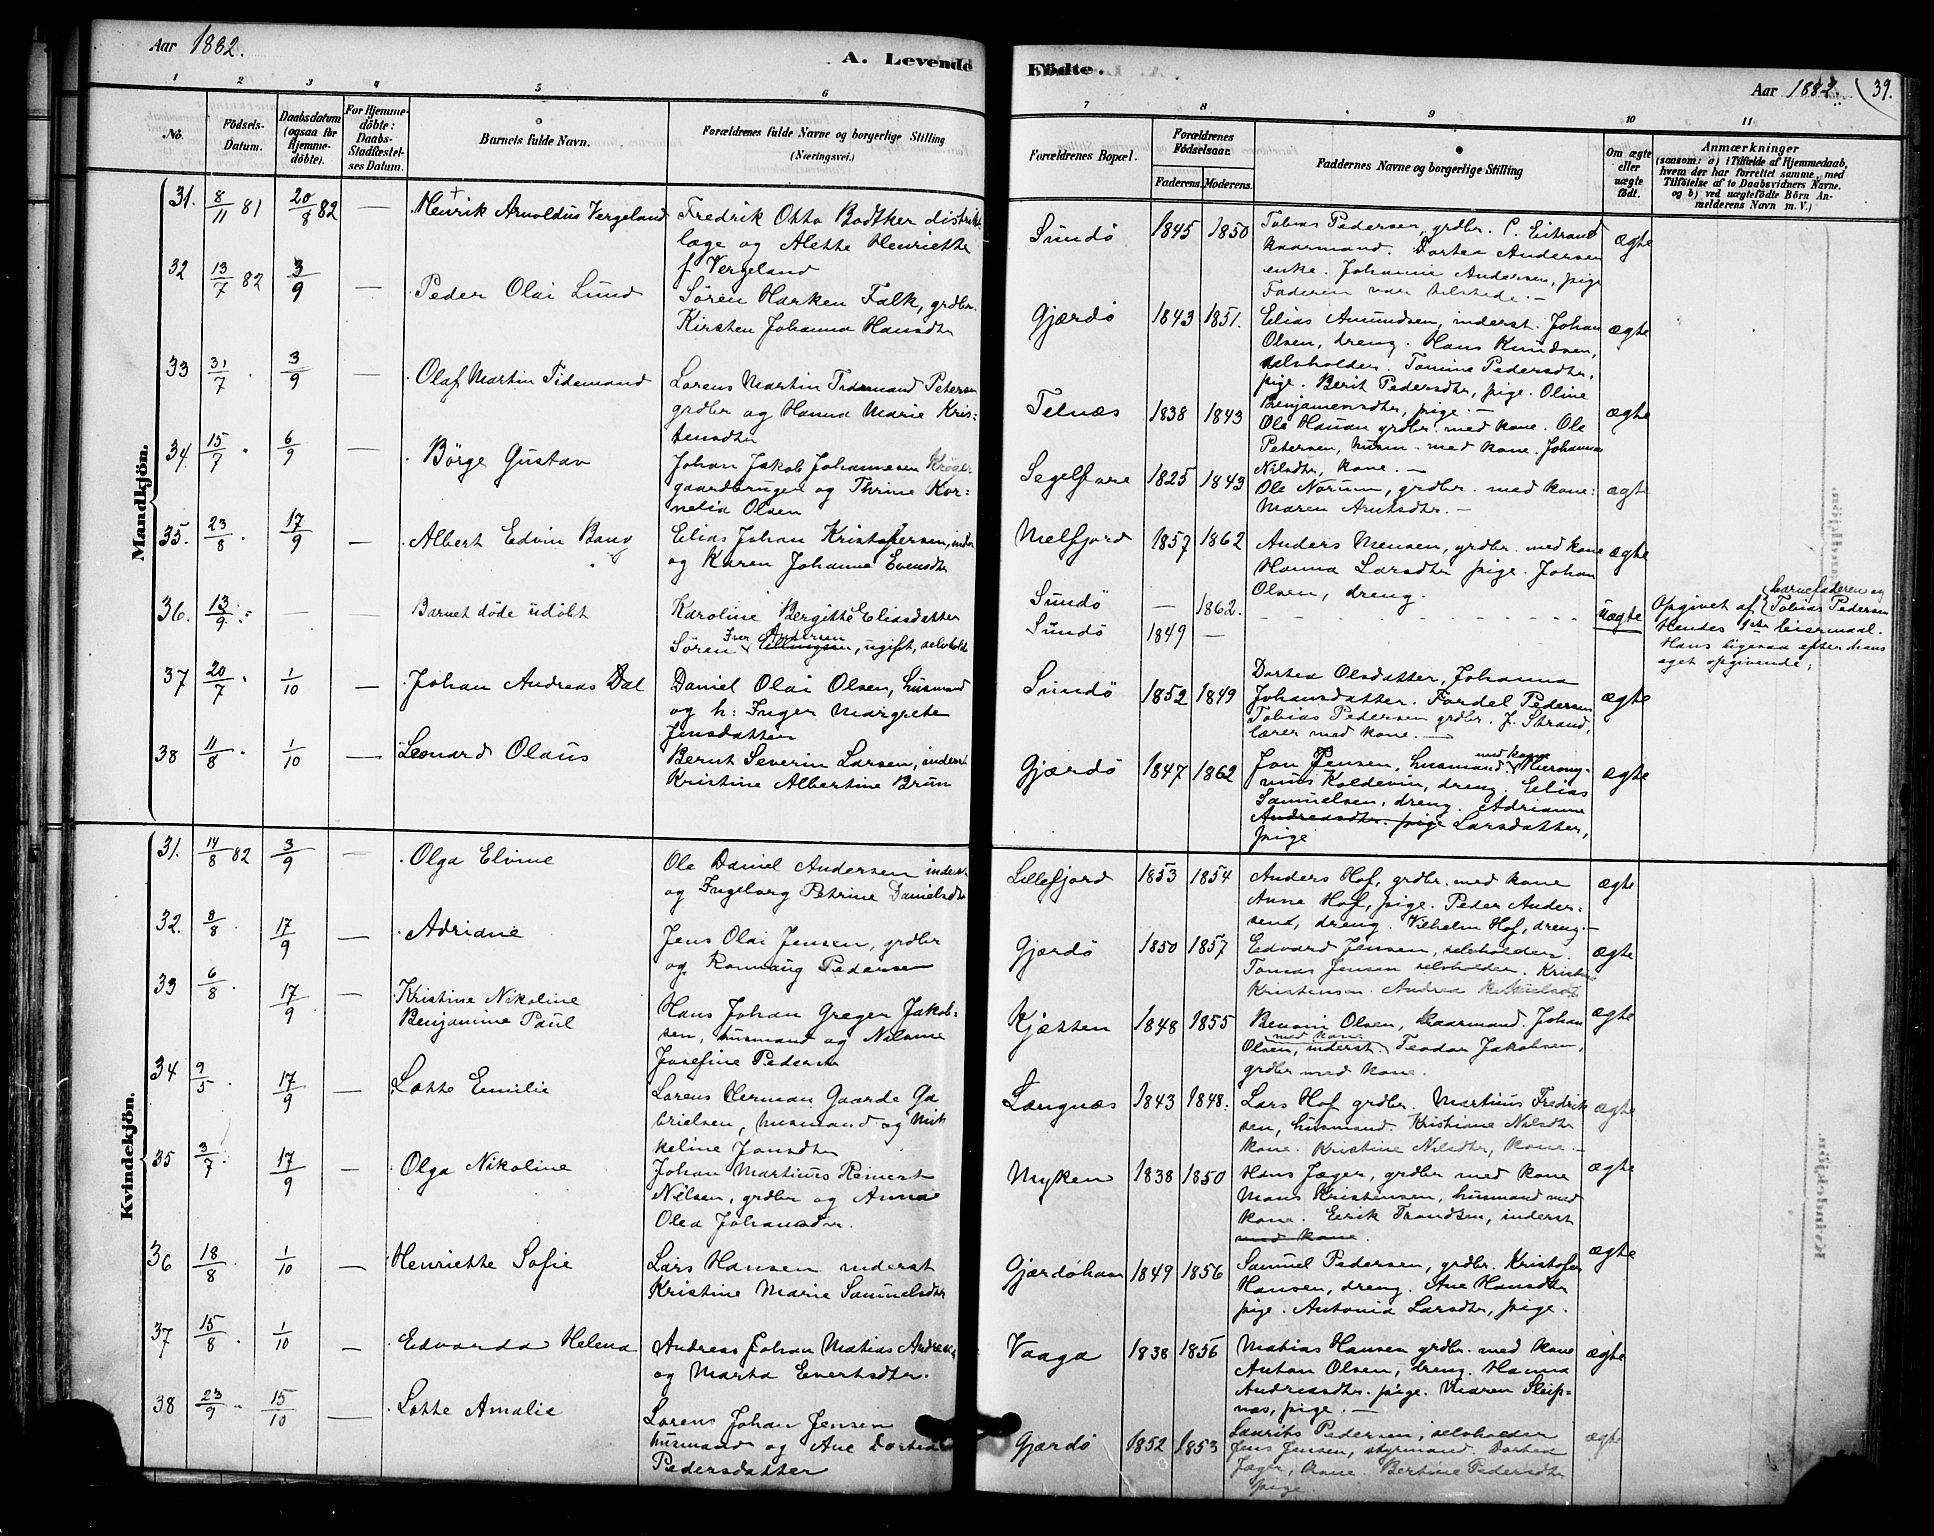 Aar 1882.
A. Levende
1 2 3 4 5 6
No.
Födsels-Datum.
Daabsdatum (ogsaa for Hjemmedöbte).
For Hjemmedöbte: Daabs-Stadfæstelses Datum.
Barnets fulde Navn.
Forældrenes fulde Navne og borgerlige Stilling
(Næringsvei.)
Mandkjön.
31. 8/11 81 20/8 82 — Henrik Arnoldus Vergeland
Fredrik Otto Bødtker distrikts
læge og Alette Henriette
f Vergeland
32 13/7 82 3/9 — Peder Olai Lund
Søren Harken Falk, grdbr.
Kirsten Johanna Hansdtr
33 31/7 3/9 — Olaf Martin Tidemand
Lorens Martin Tidemand Petersen
grdbr og Hanna Marie Kris-
tensdtr
34. 15/7 6/9 — Börge Gustav
Johan Jakob Johannesen Krøger
gaardbruger og Thrine Kor-
nelia Olsen
35. 23/8 17/9 — Albert Edvin Bang
Elias Johan Kristofersen, inder
og Karen Johanne Evensdtr
36. 13/9 — — Barnet døde udøbt
Karoline Bergitte Eliasdatter
Iver Andersen
Søren Ellingsen, ugift, selvholde
37 20/7 1/10 — Johan Andreas Dal
Daniel Olai Olsen, husmand
og h: Inger Margrete
Jensdatter
38 11/8 1/10 — Leonard Olaus
Bernt Severin Larsen, inderst
Kristine Albertine Brun
Kvindekjön.
31. 14/8 82 3/9 — Olga Elvine
Ole Daniel Andersen inderst
og Ingeborg Petrine Danielsdtr
32. 8/8 17/9 — Adriane
Jens Olai Jensen, grdbr
og Ronnaug Pedersen
33 6/8 17/9 — Kristine Nikoline
Benjamine Paul
Hans Johan Greger Jakob-
sen, husmand og Nilsine
Josefine Pedersen
34 9/5 17/9 — Lotte Emilie
Lorens Herman Gaarde Ga
brielsen, husmand og Mik
keline Jonsdtr
35 3/7 17/9 — Olga Nikoline
Johan Martinus Reinert
Nilsen, grdbr og Anna
Olea Johansdtr.
36 18/8 1/10 — Henriette Sofie
Lars Hansen inderst
Kristine Marie Samuelsdtr
37 15/8 1/10 — Edvarda Helena
Andreas Johan Matias Andreas
og Marta Evertsdtr.
38 23/9 15/10 — Lotte Amalie
Lorens Johan Jensen
husmand og Ane Dortea
Pedersdatter
Födte.
Aar 1882. 39.
7 8 9 10 11
Forældrenes Bopæl.
Forældrenes Födselsaar.
Faderens. Moderens.
Faddernes Navne og borgerlige Stilling
Om ægte eller uægte födt.
Anmærkninger
(saasom: a) i Tilfælde af Hjemmedaab,
hvem der har forrettet samme, med
Tilföielse af to Daabsvidners Navne.
og b) ved uægtefödte Börn An-
melderens Navn m. V.)
Sundö 1845 1850
Tobias Pedersen, grdbr. C. Eitrand
kaarmand. Dortea Andersen
enke. Johanne Andersen, pige
Faderen var tilstede. —
ægte
Gjærdö 1843 1851.
Elias Amundsen, inderst. Johan
Olsen, dreng. Hans Knudsen,
selvholder. Tomine Pedersdtr,
pige. Berit Pedersdtr, pige. Oline
Benjamensdtr, pige. —
ægte
Telnæs 1838 1843
Ole Hauan grdbr. med kone. Ole
Petersen, husm. med kone. Johanna
Nilsdtr, kone. —
ægte
Segelfore 1825 1843
Ole Norum, grdbr. med kone:
Maren Arntsdtr. —
ægte
Melfjord 1857 1862
Anders Mensen, grdbr. med kone
Hanna Larsdtr pige. Johan
Olsen, dreng.
ægte
Sundö — 1862.
Sundö 1849 —
uægte
Opgivet af barnefaderen og
Tobias Pedersen
Hendes 1ste leiermaal.
Hans ligesaa efter hans
eget opgivende;
Sundö 1852 1849
Dortea Olsdatter, Johanna
Johansdatter. Fordel Pedersen
Tobias Pedersen grdbr. J. Strand,
lærer med kone. —
ægte
Gjærdö 1847 1862
Jon Jensen, husmand med kone. Hierony-
mus Koldevin, dreng. Elias
Samuelsen, dreng. Adrianna
Andreasdtr. pige Larsdatter,
pige
ægte
Lillefjord 1853 1854
Anders Hof, grdbr. med kone
Anne Hof, pige. Peder Ander-
sen, dreng. Vilhelm Hof, dreng. —
ægte
Gjærdö 1850 1857
Edvard Jensen, selvholder.
Tomas Jensen selvholder. Kristine
Kristensen. Andrea
ægte
Kjætten 1848 1855
Benoni Olsen, kaarmand. Johan
Olsen, inderst med kone. Teodor Jakobsen,
grdbr med kone.
ægte
Langnæs 1843 1848.
Lars Hof grdbr. Martinus Fredrik
sen, husmand. Kristiane Nilsdtr
kone. Kristine Nilsdtr, kone. —
ægte
Myken 1838 1850
Hans Jæger, grdbr med kone
Mons Kristensen, husmand med
kone. Eirik Trondsen, inderst
med kone.
ægte
Gjærdöhavn 1849 1856
Samuel Pedersen, grdbr. Kristofer
Hansen, dreng. Ane Hansdtr
pige. Antonia Larsdtr, pige.
ægte
Vaaga 1838 1856
Matias Hansen grdbr. med kone
Anton Olsen, dreng. Hanna
Andreasdtr. pige. Maren Sleip-
næs, pige. —
ægte
Gjærdö 1852 1853
Laurits Pedersen, selvholder
Jens Jensen, styrmand. Dorthea
Jæger, kone. Bertine Pedersdtr
pige
ægte